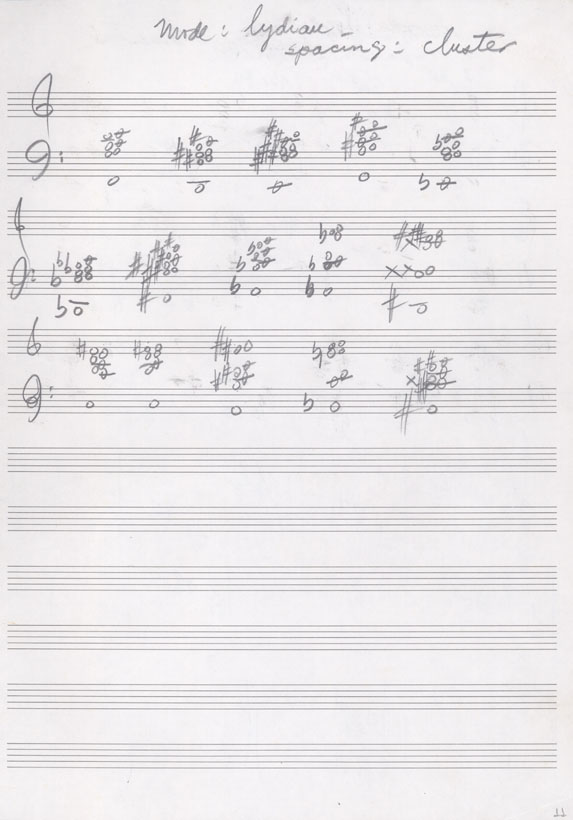 Mode: lydian
spacing: cluster
11